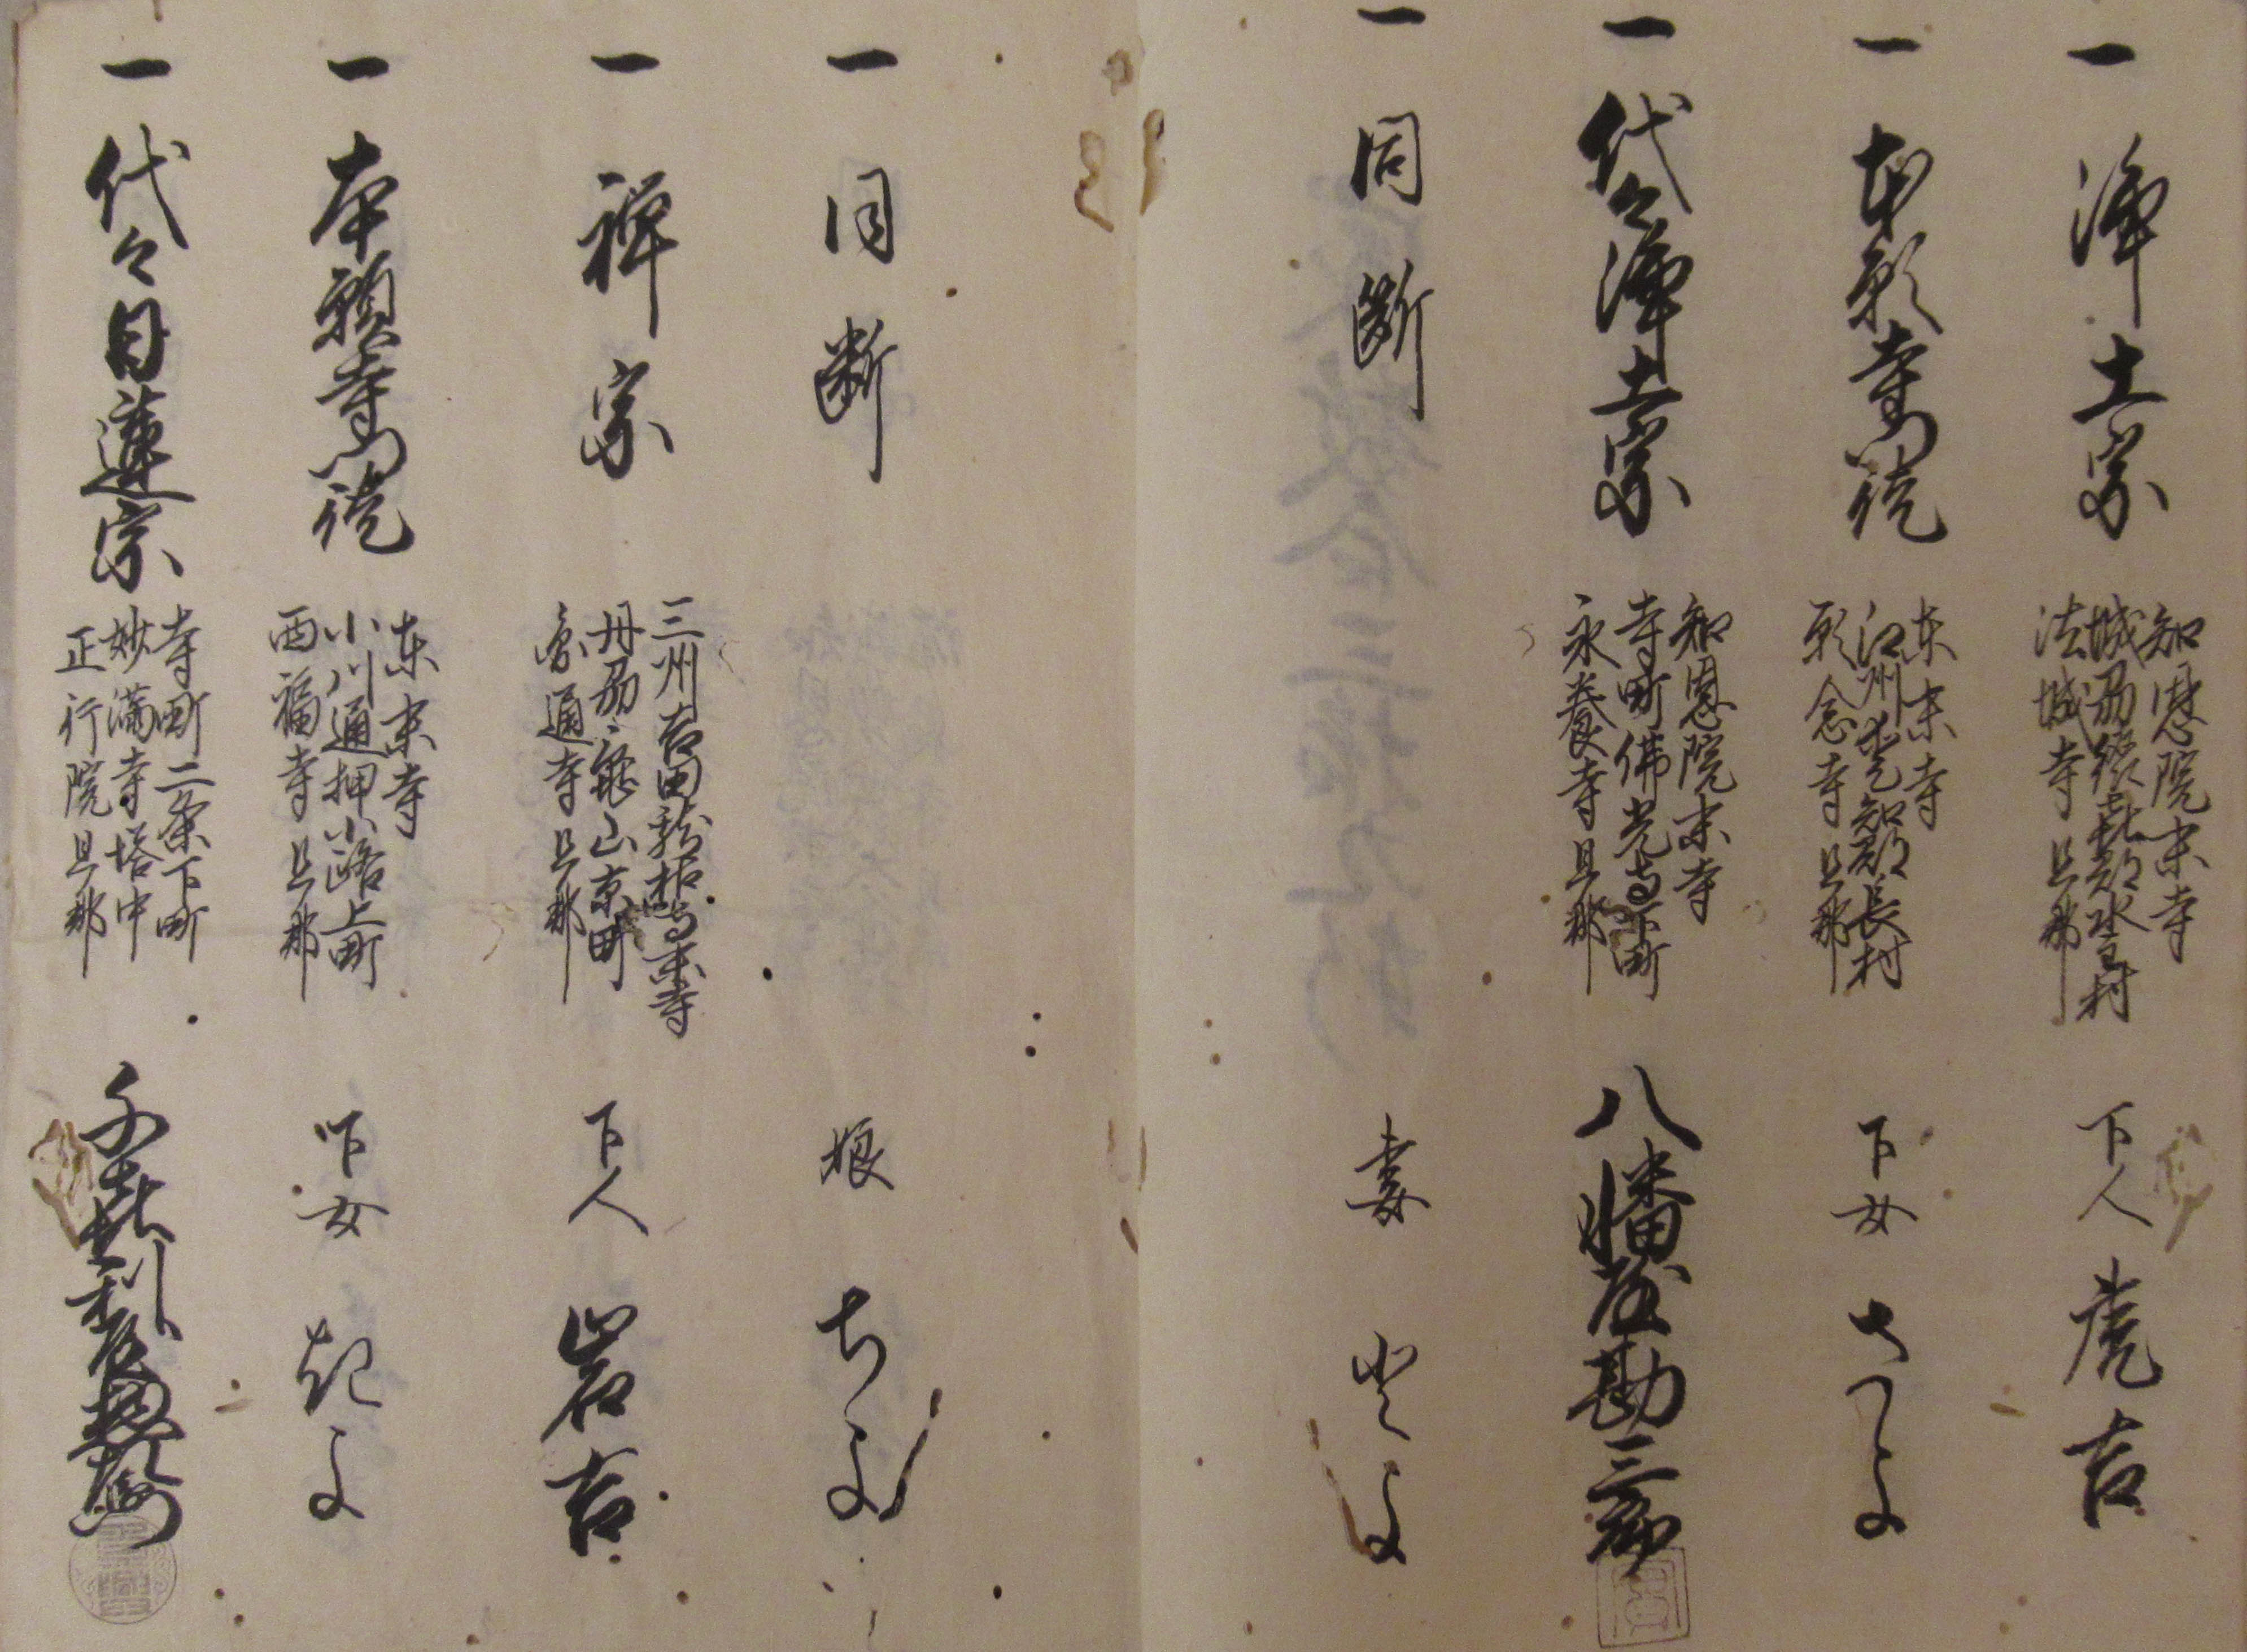 一 浄土宗
知恩院末寺
城州綴喜郡水主村
法城寺旦那
下人 虎吉
一 本願寺門徒
东末寺
江州愛知郡長村
願念寺旦那
下女 さつよ
一 代々浄土宗
知恩院末寺
寺町佛光寺下町
永養寺旦那
八幡屋勘三郎
一 同断
妻 とよ
一 同断
娘 ちよ
一 禅宗
三州吉田龍拈寺末寺
丹州亀山京町
宗通寺旦那
下人 岩吉
一 本願寺門徒
东末寺
小川通押小路上町
西福寺旦那
下女 起よ
一 代々日蓮宗
寺町二条下町
妙満寺塔中
正行院旦那
千喜利屋